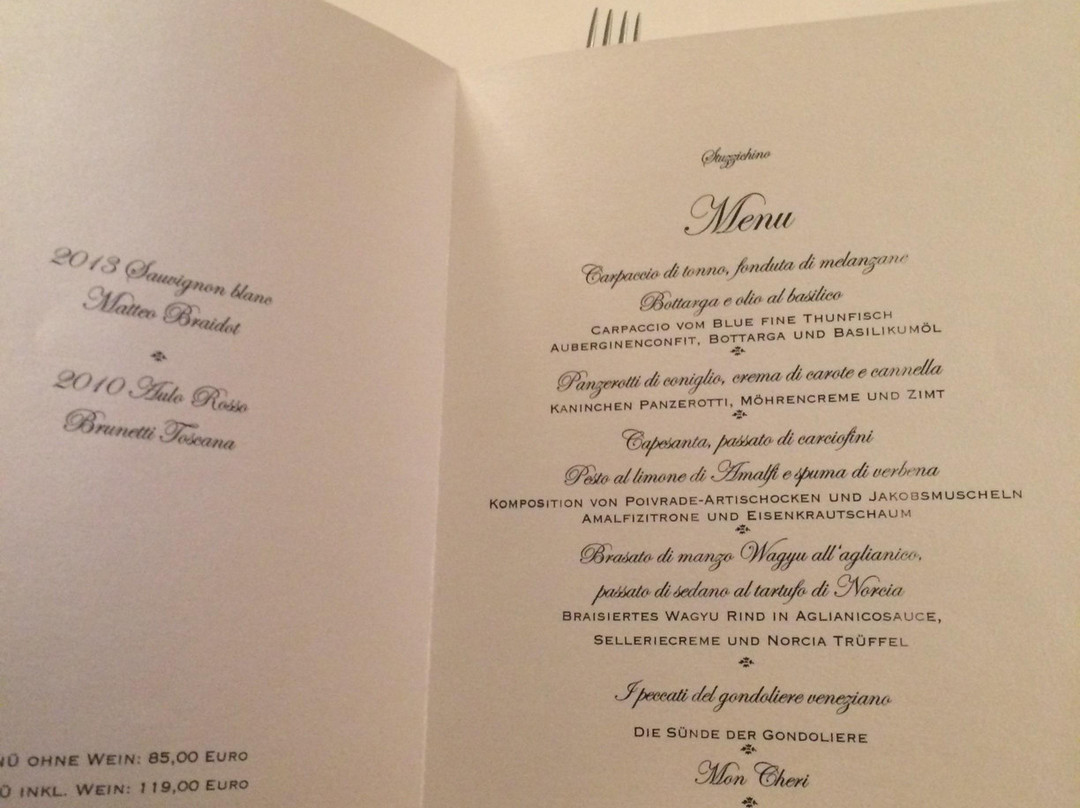 2013 Sauvignon blanc
Matteo Braidot
2010 Aulo Rosso
Brunetti Toscana
NÜ OHNE WEIN: 85,00 EURO
Ü INKL. WEIN: 119,00 EURO
Stuzzichino
Menu
Carpaccio di tonno, fonduta di melanzane
Bottarga e olio al basilico
CARPACCIO VOM BLUE FINE THUNFISCH
AUBERGINENCONFIT, BOTTARGA UND BASILIKUMÖL
Panzerotti di coniglio, crema di carote e cannella
KANINCHEN PANZEROTTI, MÖHRENCREME UND ZIMT
Capesanta, passato di carciofini
Pesto al limone di Amalfi e spuma di verbena
KOMPOSITION VON POIVRADE-ARTISCHOCKEN UND JAKOBSMUSCHELN
AMALFIZITRONE UND EISENKRAUTSCHAUM
Brasato di manzo Wagyu all'aglianico,
passato di sedano al tartufo di Norcia
BRAISIERTES WAGYU RIND IN AGLIANICOSAUCE,
SELLERIECREME UND NORCIA TRÜFFEL
I peccati del gondoliere veneziano
DIE SÜNDE DER GONDOLIERE
Mon Cheri